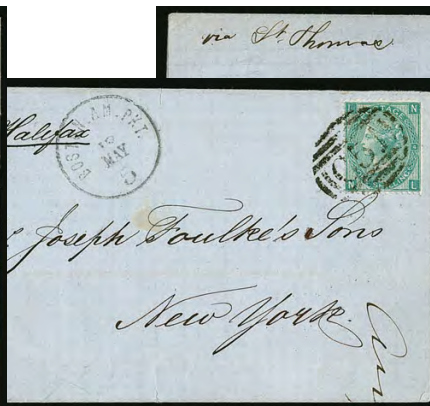 via St. Thomas
Halifax
BOST. AM. PKT.
MAY
5
N
N L
Joseph Foulke's Sons
New York.